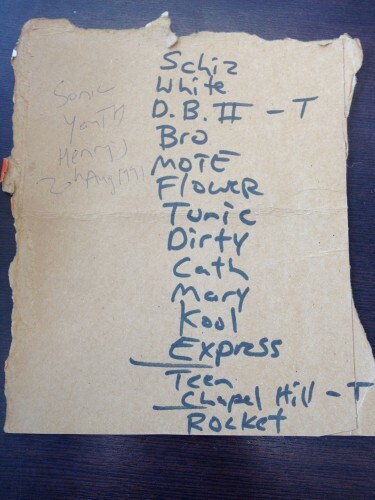 Schiz
White
D.B. II - T
Bro
MOTE
FLOWER
Tunic
Dirty
Cath
Mary
Kool
Express
Teen
Chapel Hill - T
Rocket
Sonic
Youth
Henrys